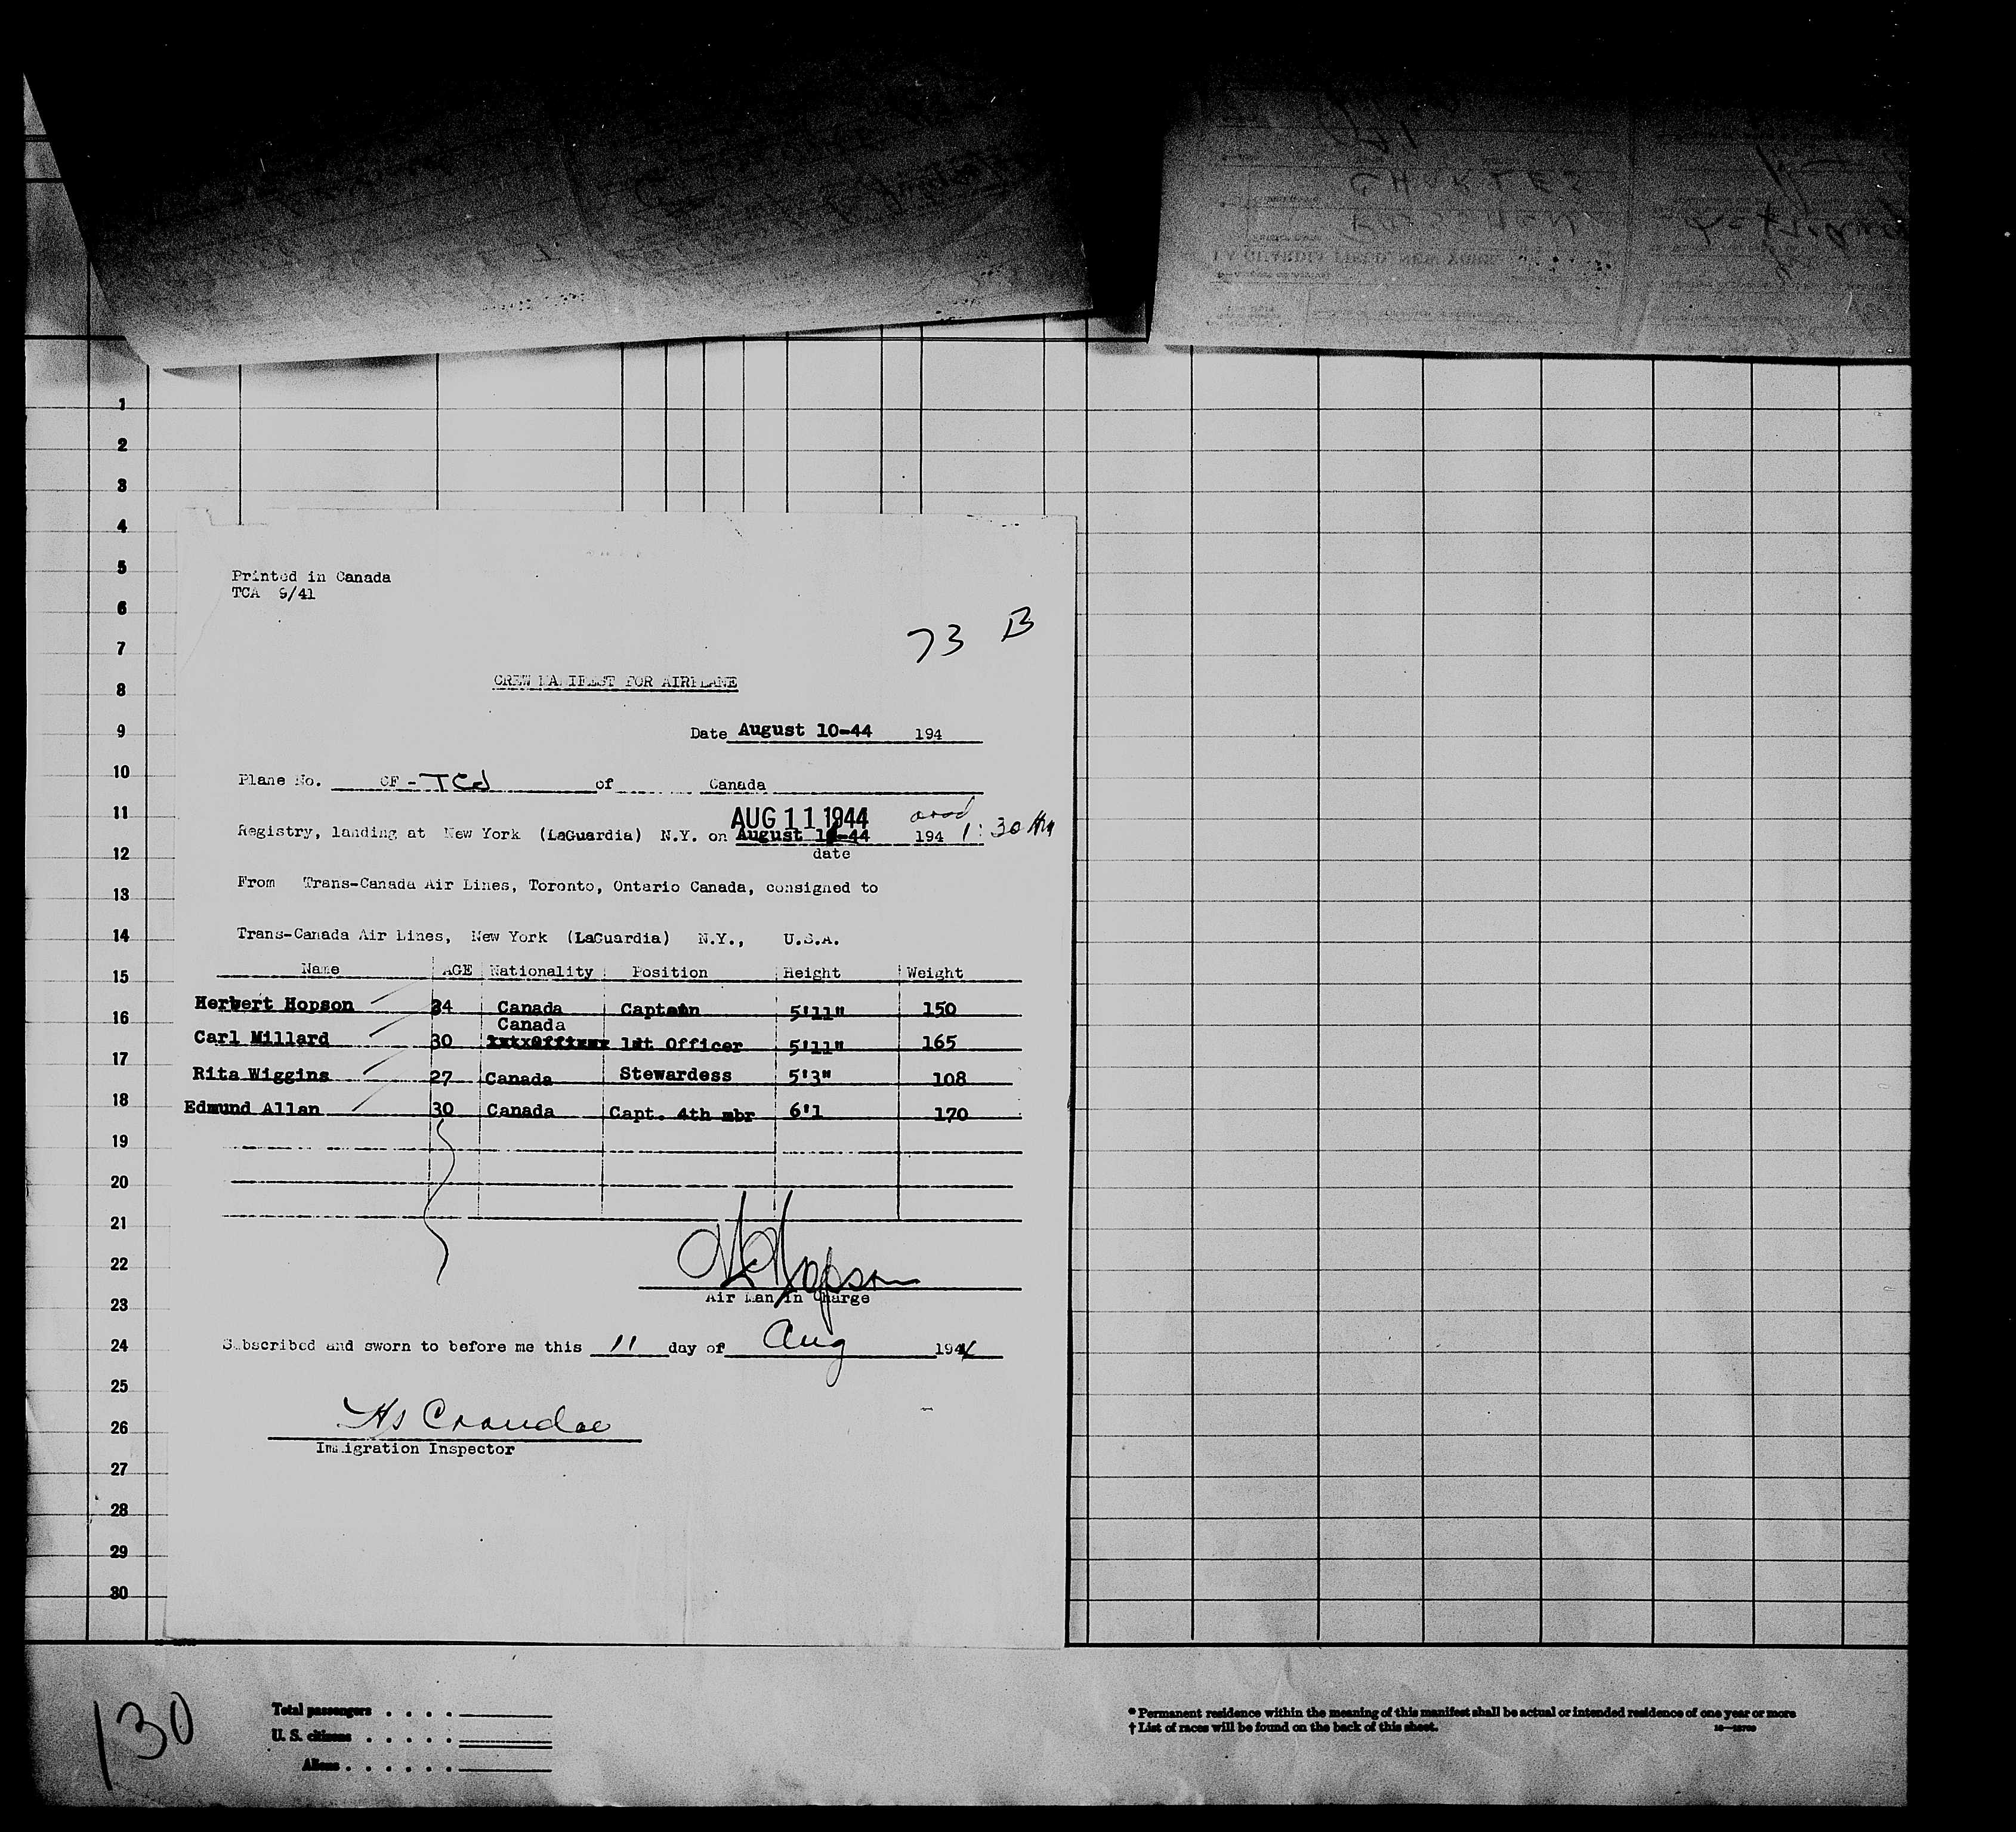 Printed in Canada
TCA 9/41
73 B
CREW MANIFEST FOR AIRPLANE
Date August 10-44 194
Plane No. CF - TCJ of Canada
AUG 11 1944
Registry, landing at New York (LaGuardia) N.Y. on August 1-44 194 1:30 AM
date
From Trans-Canada Air Lines, Toronto, Ontario Canada, consigned to
Trans-Canada Air Lines, New York (LaGuardia) N.Y., U.S.A.
Name AGE Nationality Position Height Weight
Herbert Hopson 34 Canada Captain 5'11" 150
Canada
Carl Millard 30 1st Officer 5'11" 165
Rita Wiggins 27 Canada Stewardess 5'3" 108
Edmund Allan 30 Canada Capt. 4th mbr 6'1 170
Hopson
Air Man in Charge
Subscribed and sworn to before me this 11 day of Aug 1944
Hs Crandall
Immigration Inspector
1
2
3
4
5
6
7
8
9
10
11
12
13
14
15
16
17
18
19
20
21
22
23
24
25
26
27
28
29
30
130
Total passengers . . . .
U. S. citizens . . . . .
Aliens . . . . . .
* Permanent residence within the meaning of this manifest shall be actual or intended residence of one year or more
† List of races will be found on the back of this sheet.